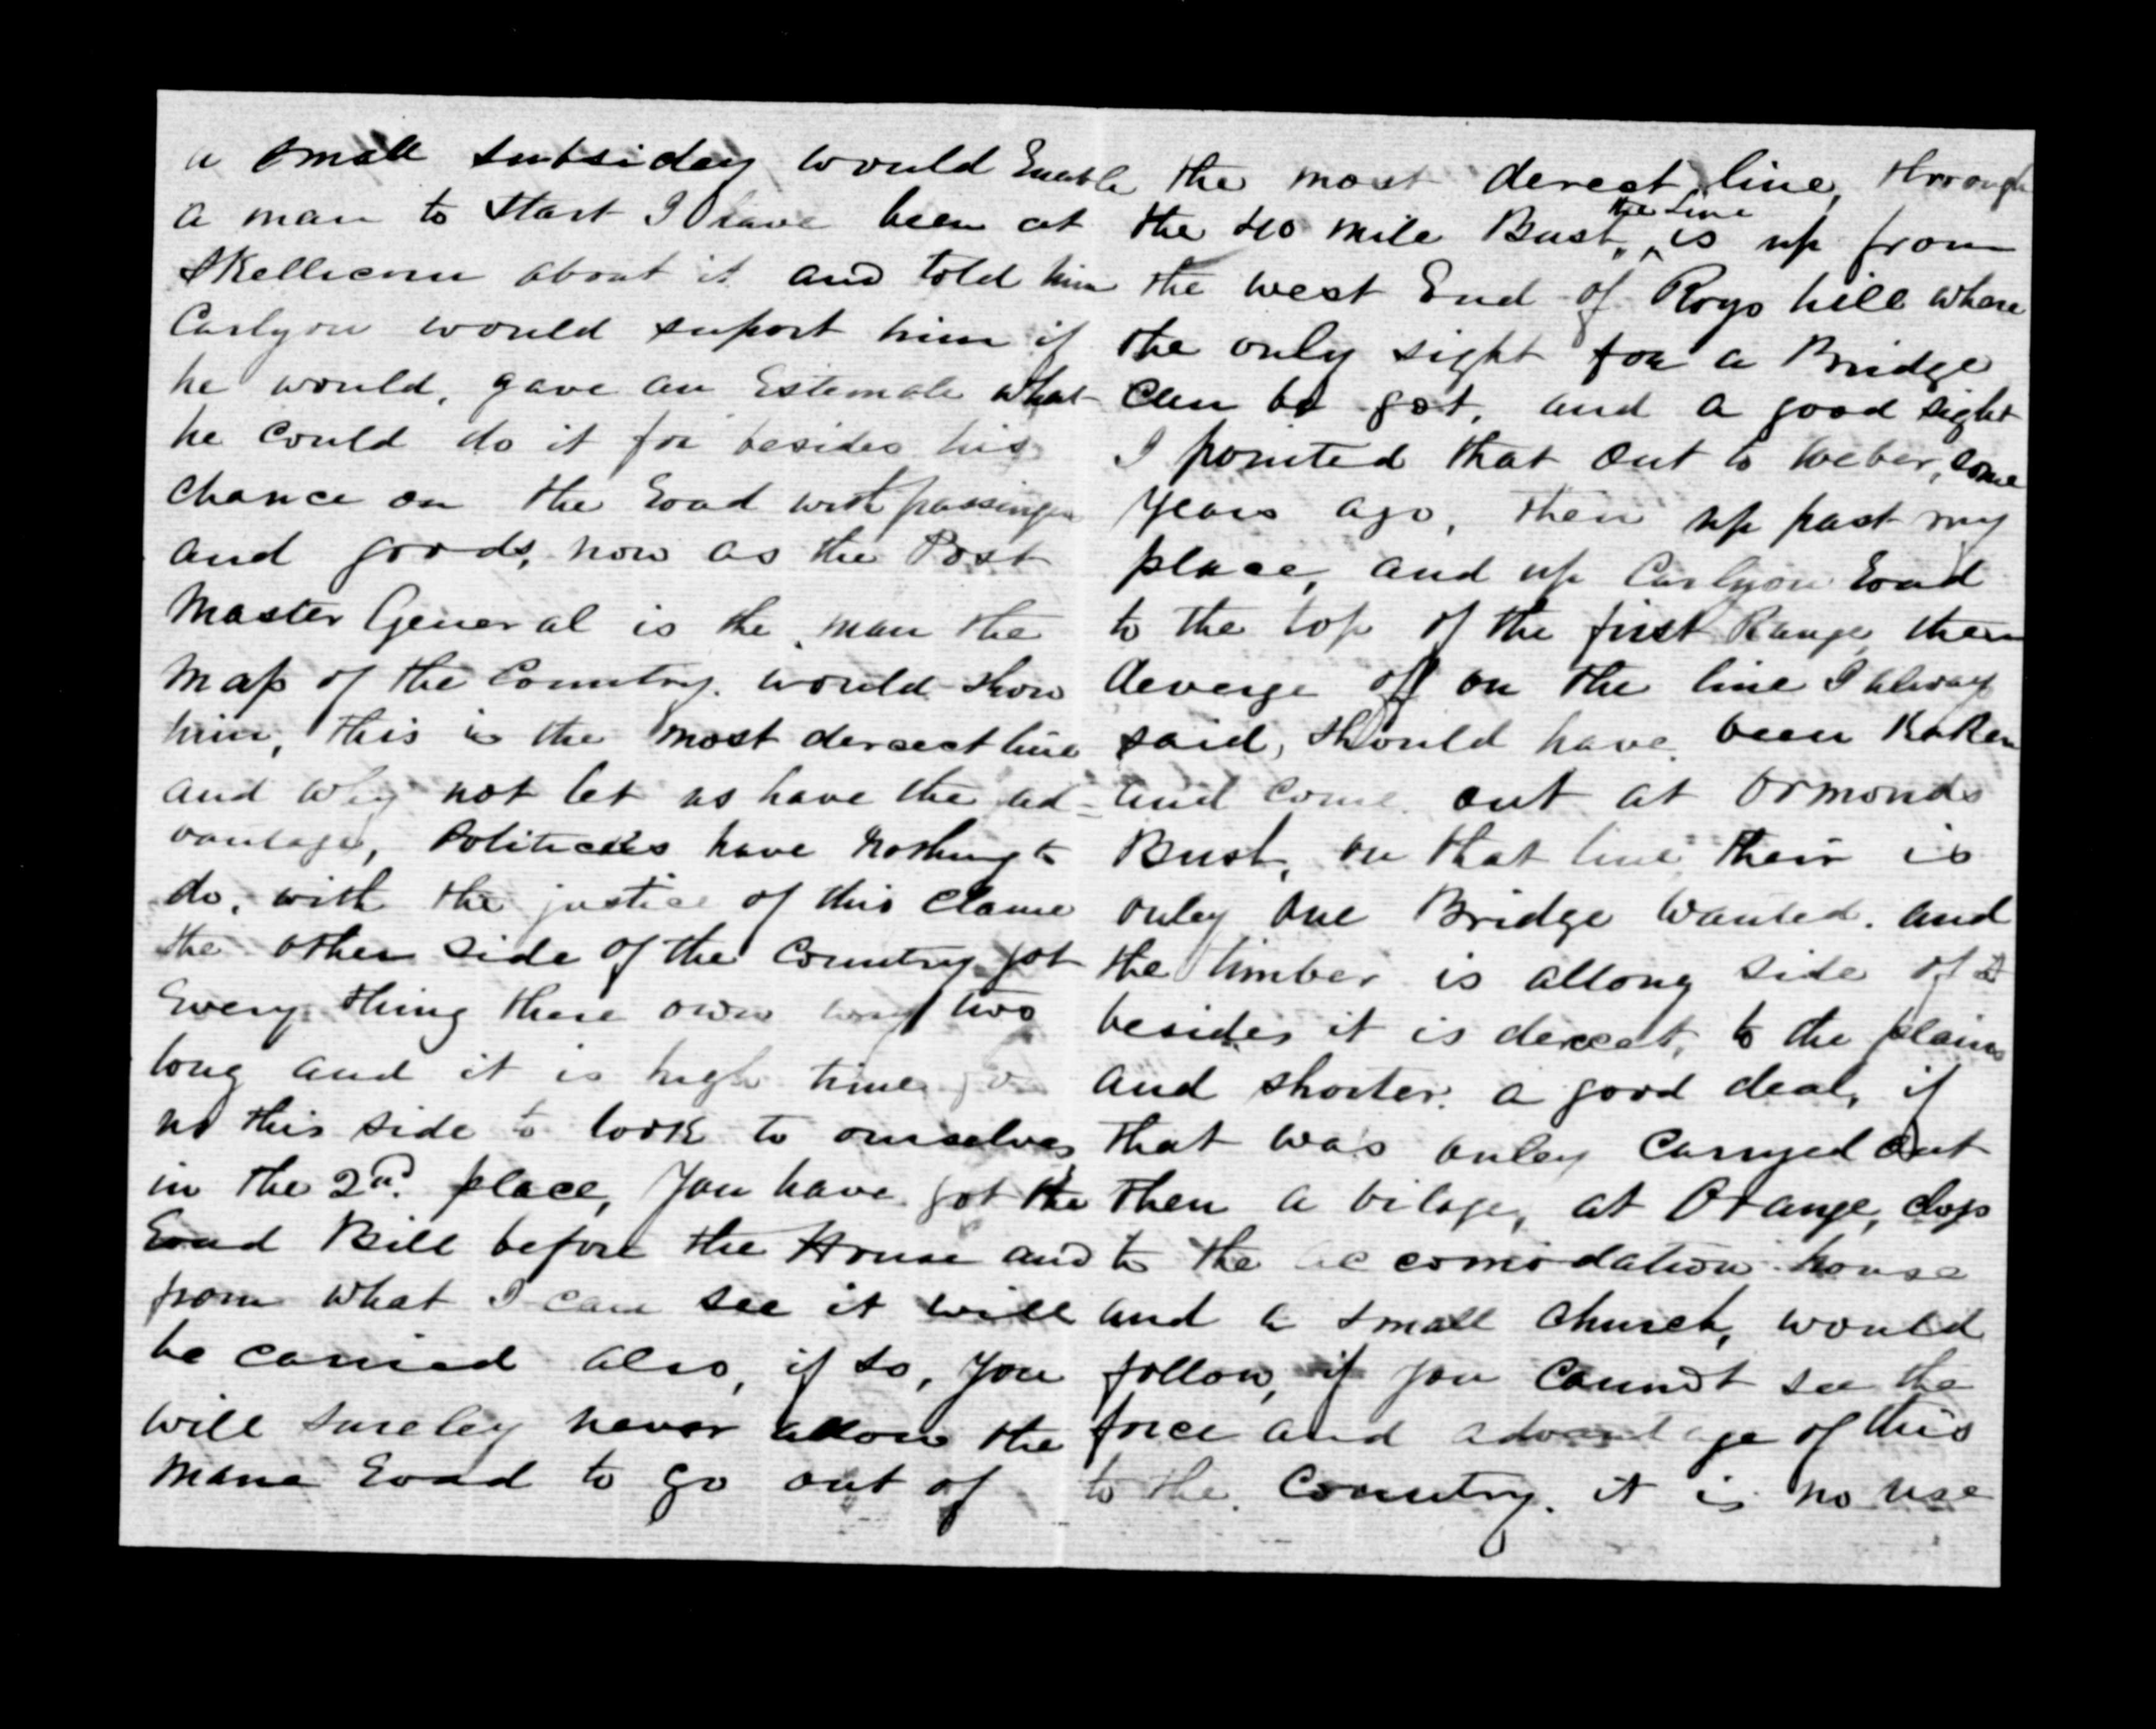 a small subsidey would Enable
a man to start I have been at
Skellicorn about it and told him
Carlyon would suport him if
he would, gave an Estemate what
he could do it for besides his
chance on the Road with passinger
and goods, now as the Post
Master General is the man the
map of the Country. would show
him, this is the most dereect line
and why not let us have the ad=
vantage, Politickes have nothing to
do, with the justice of this Clame
the other side of the Country got
Every thing there own way two
long and it is high time for
us this side to look to ourselves
in the 2nd. place, You have got the
Road Bill before the House and
from what I can see it will
be carried also, if so, you
will sureley never allow the
mane Road to go out of
the most derect line, through
the 40 mile Bush, the Line is up from
the west End of Roys hill where
the only sight for a Bridge
can be got, and a good sight
I pointed that out to Weber, some
years ago, then up past my
place, and up Carlyon Road
to the top of the first Range, then
deverge off on the line I alway
said, should have been taken
and come out at Ormonds
Bush, on that line their is
onley one Bridge wanted. and
the timber is allong side of it
besides it is dereect, to the plains
and shorter. a good deal, if
that was onley carryed out
then a vilage, at Orange, clops
to the accomodation house
and a small church, would
follow, if you cannot see the
force and advantage of this
to the Country. it is no use